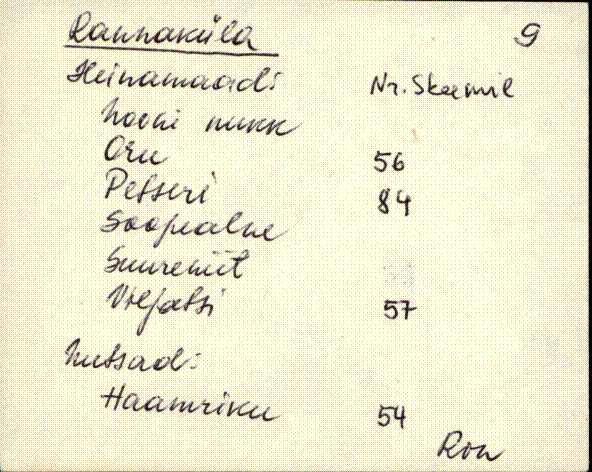 Rannaküla 9
Heinamaad: Nr. Skeemil
nukk
Oru 56
Petseri 84
Soopealne
Suureniit
57
Metsad:
Haamriku 54